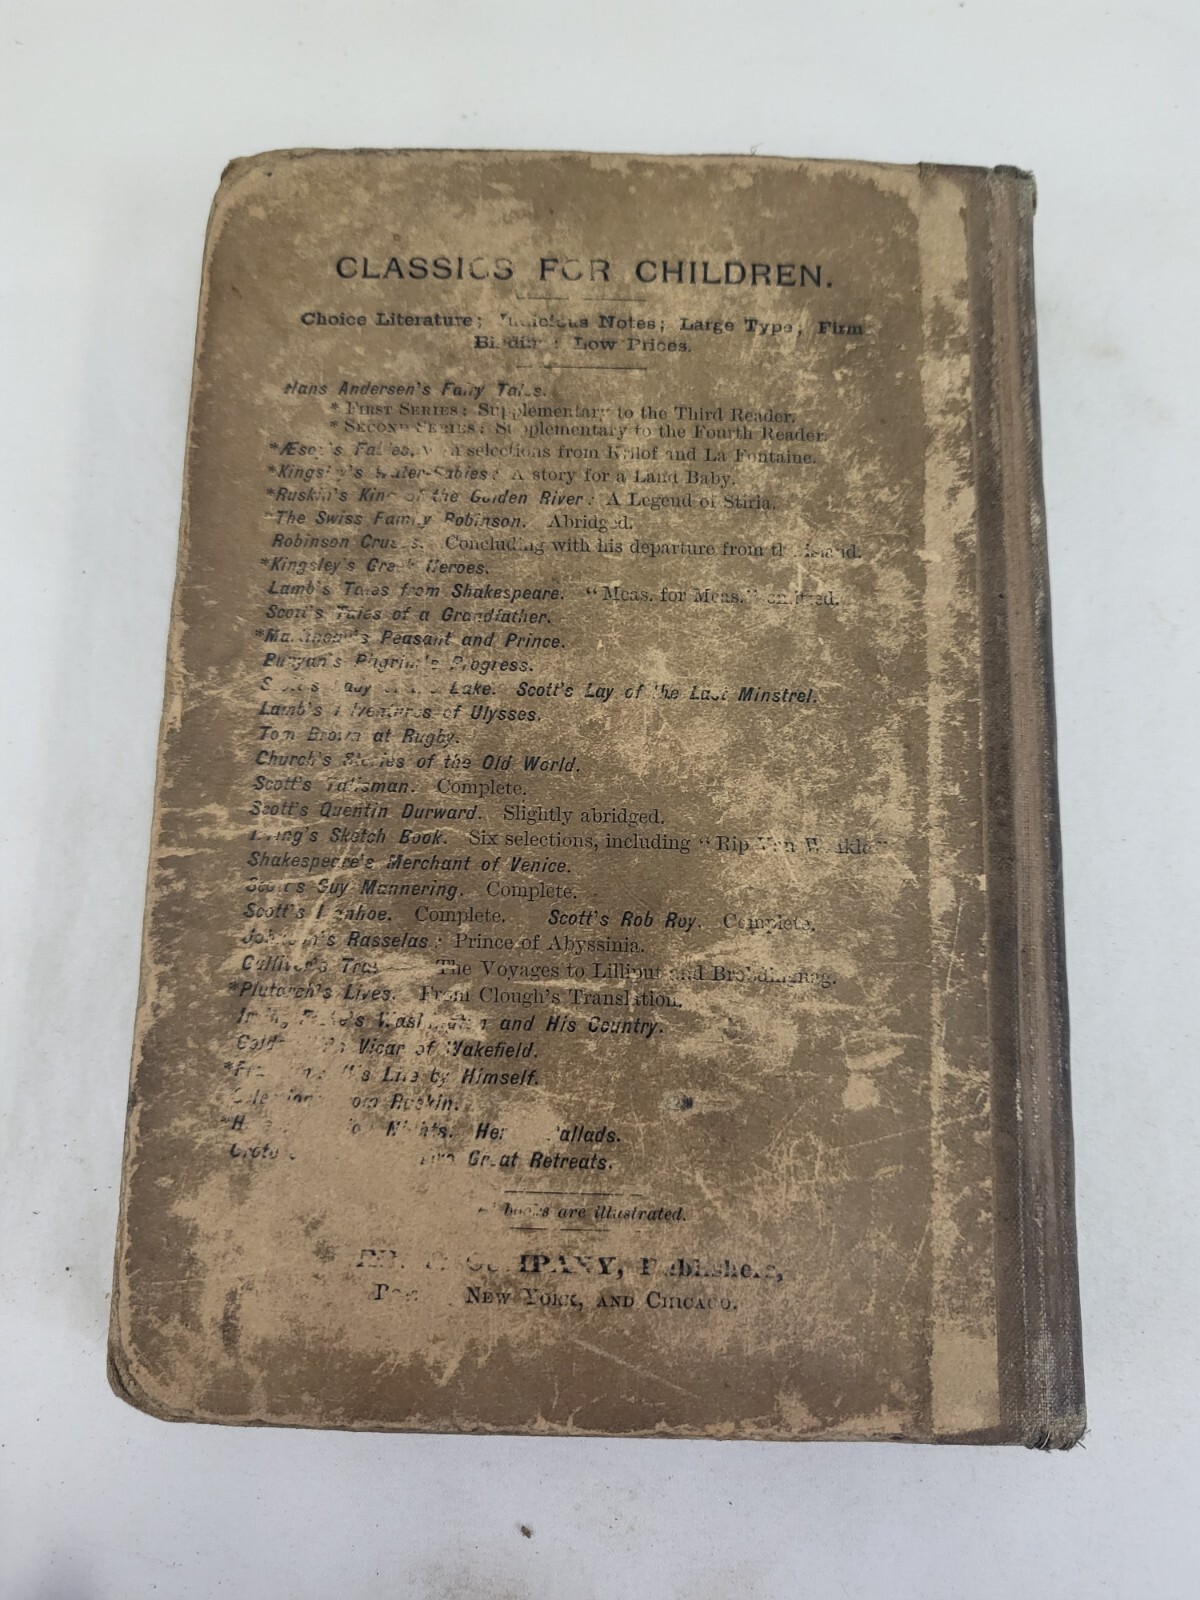 CLASSICS FOR CHILDREN.
Choice Literature; Judicious Notes; Large Type; Firm
Binding; Low Prices.
Hans Andersen's Fairy Tales.
* FIRST SERIES: Supplementary to the Third Reader.
* SECOND SERIES: Supplementary to the Fourth Reader.
*Æsop's Fables, with selections from Krilof and La Fontaine.
*Kingsley's Water-Babies: A story for a Land Baby.
*Ruskin's King of the Golden River: A Legend of Stiria.
*The Swiss Family Robinson. Abridged.
Robinson Crusoe. Concluding with his departure from the island.
*Kingsley's Greek Heroes.
Lamb's Tales from Shakespeare. "Meas. for Meas." omitted.
Scott's Tales of a Grandfather.
*Martineau's Peasant and Prince.
Bunyan's Pilgrim's Progress.
Scott's Lady of the Lake. Scott's Lay of the Last Minstrel.
Lamb's Adventures of Ulysses.
Tom Brown at Rugby.
Church's Stories of the Old World.
Scott's Talisman. Complete.
Scott's Quentin Durward. Slightly abridged.
Irving's Sketch Book. Six selections, including "Rip Van Winkle"
Shakespeare's Merchant of Venice.
Scott's Guy Mannering. Complete.
Scott's Ivanhoe. Complete. Scott's Rob Roy. Complete.
Johnson's Rasselas: Prince of Abyssinia.
Gulliver's Travels. The Voyages to Lilliput and Brobdingnag.
*Plutarch's Lives. From Clough's Translation.
Irving Fiske's Washington and His Country.
Goldsmith's Vicar of Wakefield.
*Franklin's Life by Himself.
Selections from Ruskin.
Nights. Ballads.
Great Retreats.
books are illustrated.
COMPANY, Publishers,
NEW YORK, AND CHICAGO.